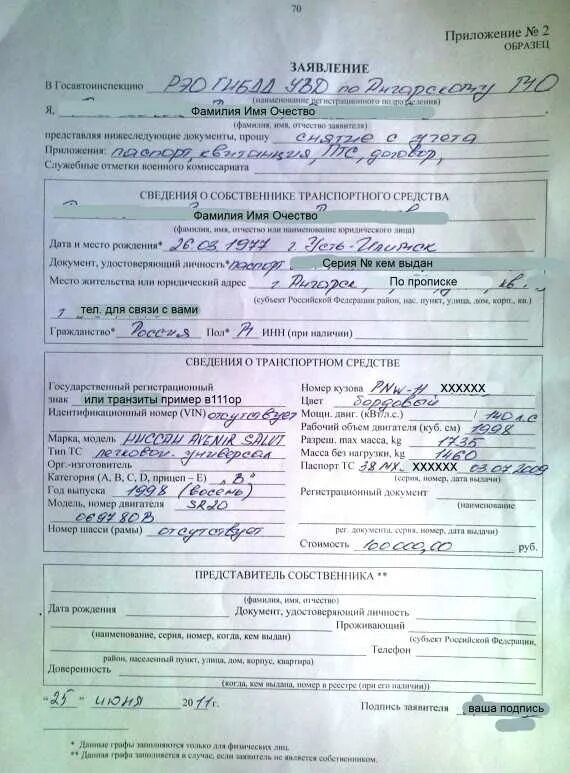 70
Приложение № 2
ОБРАЗЕЦ
ЗАЯВЛЕНИЕ
В Госавтоинспекцию РЭО ГИБДД УВД по Ангарскому
(наименование регистрационного подразделения)
Я, Фамилия Имя Очество
(фамилия, имя, отчество заявителя)
представляя нижеследующие документы, прошу снятие с учета
Приложения: паспорт, квитанция, ПТС, договор,
Служебные отметки военного комиссариата
СВЕДЕНИЯ О СОБСТВЕННИКЕ ТРАНСПОРТНОГО СРЕДСТВА
Фамилия Имя Очество
(фамилия, имя, отчество или наименование юридического лица)
Дата и место рождения* 26.03.1977 г. Усть-Илимск
Документ, удостоверяющий личность* паспорт Серия № кем выдан
Место жительства или юридический адрес г. Ангарск, По прописке кв.
(субъект Российской Федерации район, нас. пункт, улица, дом, корп., кв.)
т тел. для связи с вами
Гражданство* Россия Пол* М ИНН (при наличии)
СВЕДЕНИЯ О ТРАНСПОРТНОМ СРЕДСТВЕ
Государственный регистрационный
знак или транзиты пример в111ор
Идентификационный номер (VIN) отсутствует
Марка, модель НИССАН AVENIR SALUT
Тип ТС легковой-универсал
Орг.-изготовитель
Категория (A, B, C, D, прицеп – E) „В"
Год выпуска 1998 (восемь)
Модель, номер двигателя SR20
069780В
Номер шасси (рамы) отсутствует
Номер кузова PNW-11 XXXXXX
Цвет бордовый
Мощн. двиг. (кВт/л.с.) /140 л.с
Рабочий объем двигателя (куб. см) 1998
Разреш. max масса, kg 1735
Масса без нагрузки, kg 1460
Паспорт ТС 38 МХ XXXXXX 03.07.2009
(серия, номер, дата выдачи)
Регистрационный документ
(наименование
рег. документа, серия, номер, дата выдачи)
Стоимость 100000,00 руб.
ПРЕДСТАВИТЕЛЬ СОБСТВЕННИКА **
(фамилия, имя, отчество)
Дата рождения Документ, удостоверяющий личность
Проживающий
(наименование, серия, номер, когда, кем выдан) (субъект Российской Федерации,
Телефон
район, населенный пункт, улица, дом, корпус, квартира)
Доверенность
(когда, кем выдана, номер в реестре (при его наличии))
"25" июня 2011г. Подпись заявителя ваша подпись
* Данные графы заполняются только для физических лиц.
** Данная графа заполняется в случае, если заявитель не является собственником.